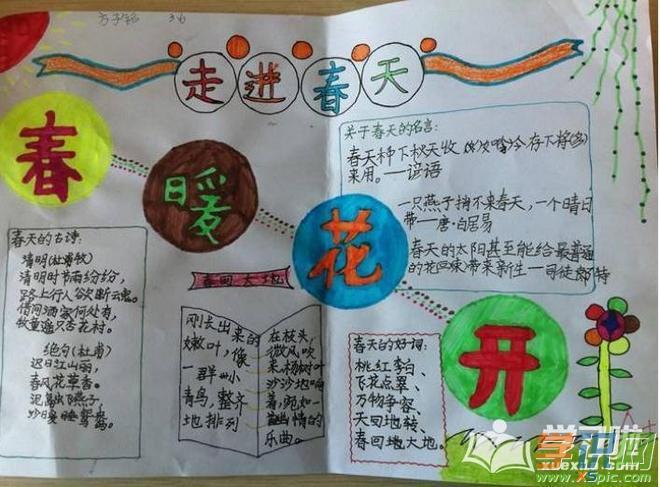 方子铭 36
走进春天
春
暖
花
开
春天的古诗:
清明(杜牧)
清明时节雨纷纷,
路上行人欲断魂。
借问酒家何处有,
牧童遥 杏花村。
绝句(杜甫)
迟日江山丽,
春风花草香。
泥 燕子,
沙暖睡鸳鸯。
春回大地
刚长出来的
嫩叶,像
一群小
青鸟,整齐
地排列
在枝头,
微风吹
来,杨树叶
沙沙地响
着,宛如一
首 情的
乐曲。
关于春天的名言:
春天种下秋天收
来用。——谚语
一只燕子捎不来春天,一个晴日
带一唐·白居易
春天的太阳甚至能给最普通
的花 带来新生一司徒 特
春天的好词:
桃红李白、
飞花点翠、
万物争容、
天回地转、
春回地大地。
A+
学识啦
xuexila.com
www.xspic.com